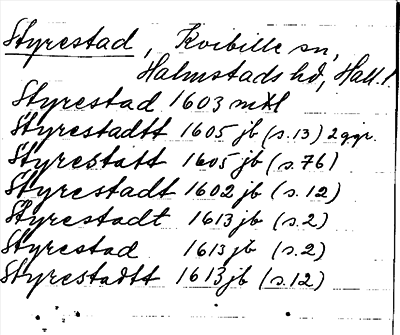 Styrestad, Kvibille sn,
Halmstads hd, Hall. l.
Styrestad 1603 mtl
Styrestadtt 1605 jb (s.13) 2 ggr.
Styrestatt 1605 jb (s.76)
Styrestadt 1602 jb (s.12)
Styrestadt 1613 jb (s.2)
Styrestad 1613 jb (s.2)
Styrestadtt 1613 jb (s.12)